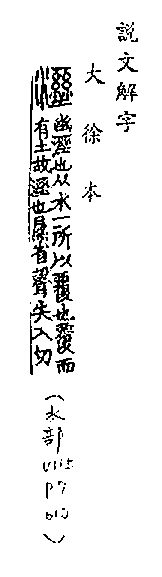 說文解字
大徐本
溼 幽溼也从水一所以覆也覆而
有土故溼也㬎省聲失入切
（水部
P7